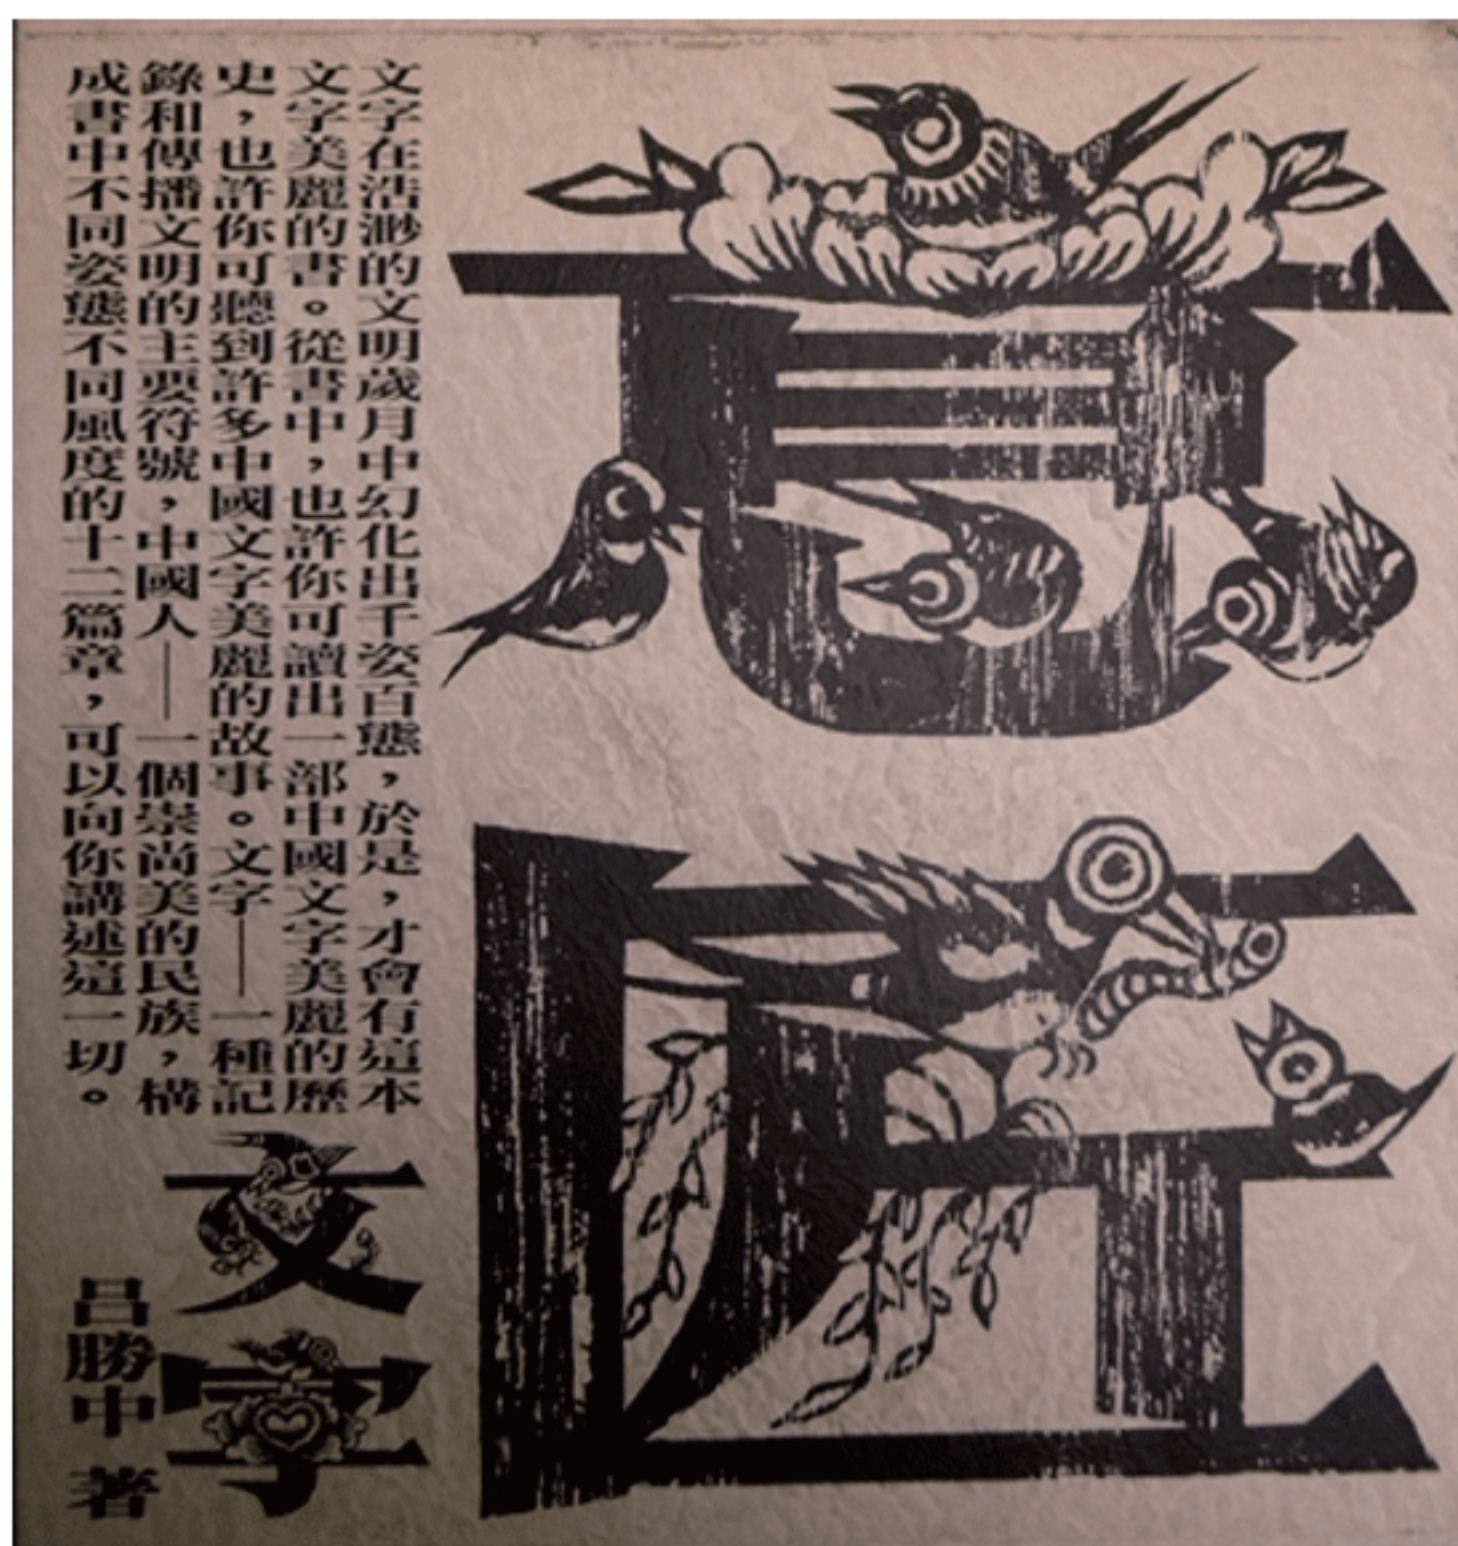 意匠
文字在浩渺的文明歲月中幻化出千姿百態，於是，才會有這本
文字美麗的書。從書中，也許你可讀出一部中國文字美麗的歷
史，也許你可聽到許多中國文字美麗的故事。文字——一種記
錄和傳播文明的主要符號，中國人——一個崇尚美的民族，構
成書中不同姿態不同風度的十二篇章，可以向你講述這一切。
文字
呂勝中 著